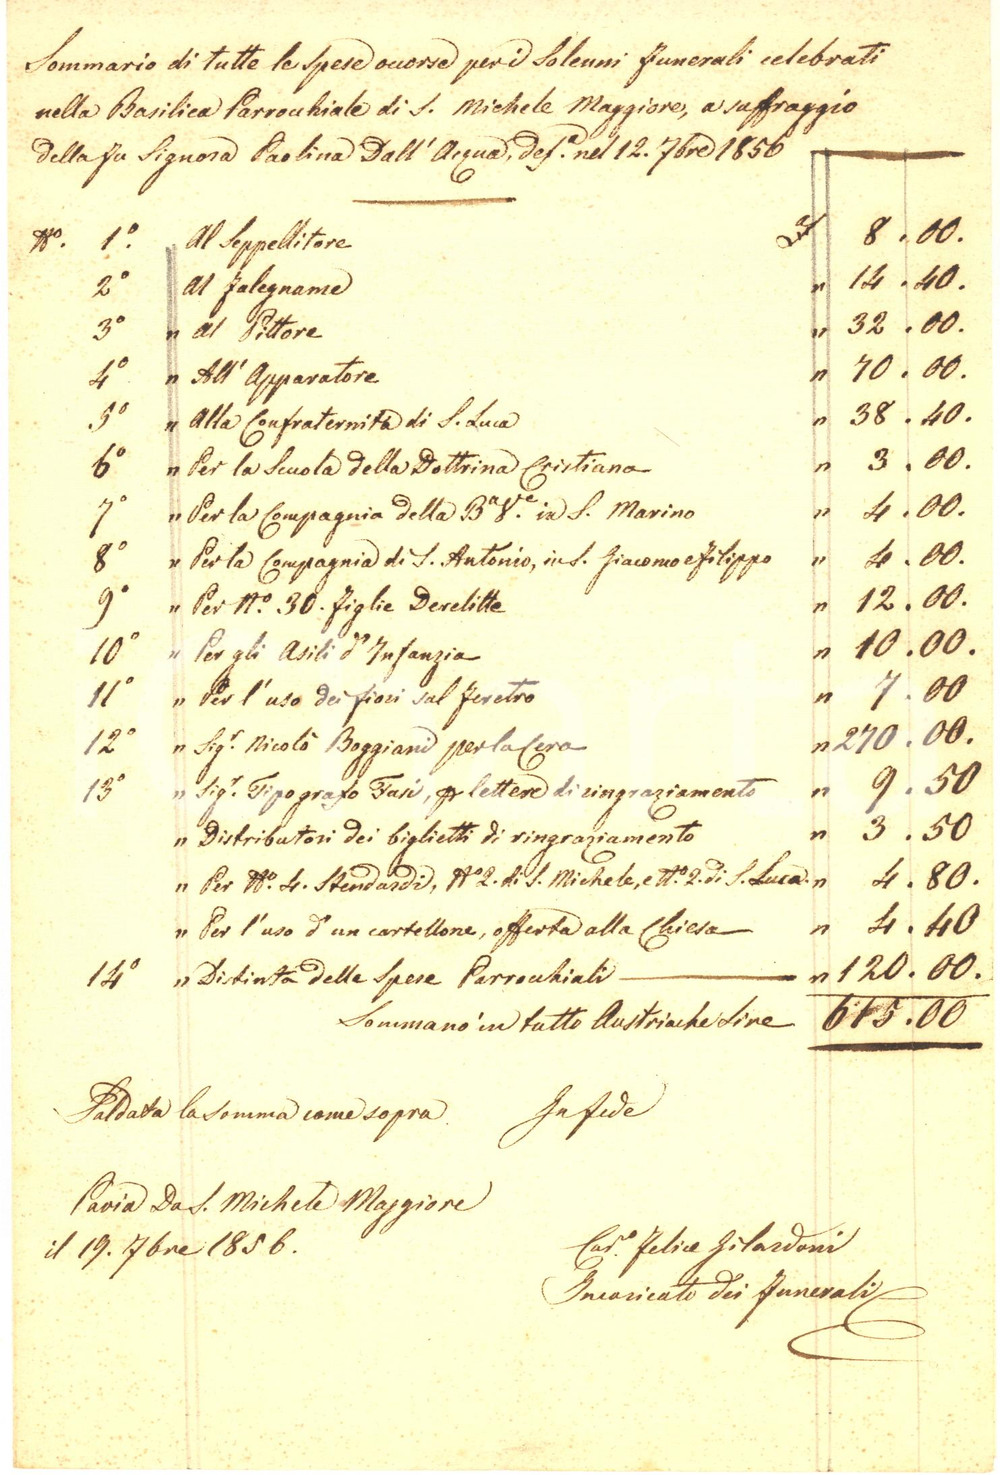 Sommario di tutte le spese occorse per i Solenni Funerali celebrati
nella Basilica Parrochiale di S. Michele Maggiore, a suffraggio
della fu Signora Paolina Dall'Acqua, def.ª nel 12. 7bre 1856
N.º 1º Al Seppellitore £ 8.00.
2º Al falegname " 14.40.
3º " Al Pittore " 32.00.
4º " All'Apparatore " 70.00.
5º " Alla Confraternità di S. Luca " 38.40.
6º " Per la Scuola della Dottrina Cristiana " 3.00.
7º " Per la Compagnia della Bª Ve. in S. Marino " 4.00.
8º " Per la Compagnia di S. Antonio, in S. Giacomo e Filippo " 4.00.
9º " Per N.º 30. figlie Derelitte " 12.00.
10º " Per gli Asili d'Infanzia " 10.00.
11º " Per l'uso dei fiori sul feretro " 7.00
12º " Sig.r Nicolò Boggiani per la Cera " 270.00.
13º " Sig.r Tipografo Fusi, pr lettere di ringraziamento " 9.50
" Distributori dei biglietti di ringraziamento " 3.50
" Per N.º 4. Stendardi, N.º 2. di S. Michele, e N.º 2. di S. Luca. " 4.80.
" Per l'uso d'un cartellone, offerta alla Chiesa " 4.40
14º " Distinta delle Spese Parrochiali " 120.00.
Sommano in tutto Austriache Lire 615.00
Saldata la somma come sopra In fede
Pavia Da S. Michele Maggiore
il 19. 7bre 1856.
Felice Gilardoni
Incaricato dei Funerali